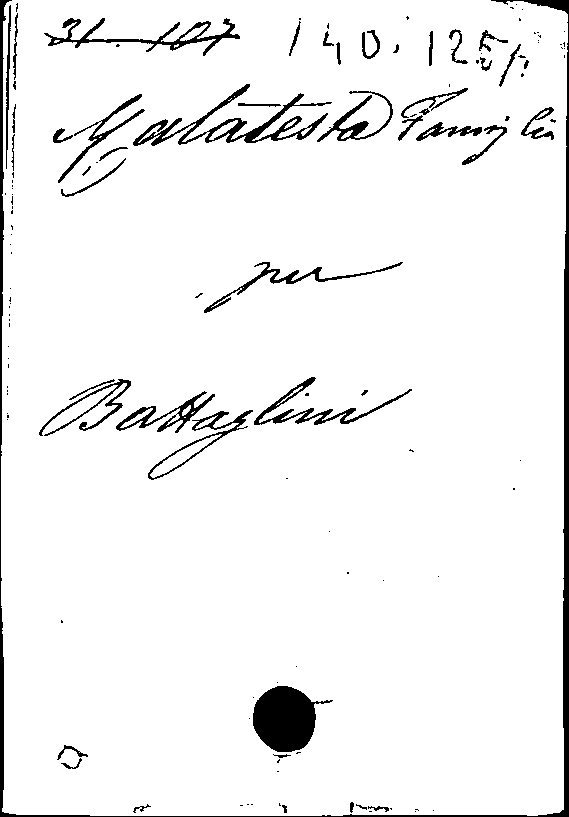 31. 107 140. 125 p.
Malatesta Famiglia
per
Battaglini